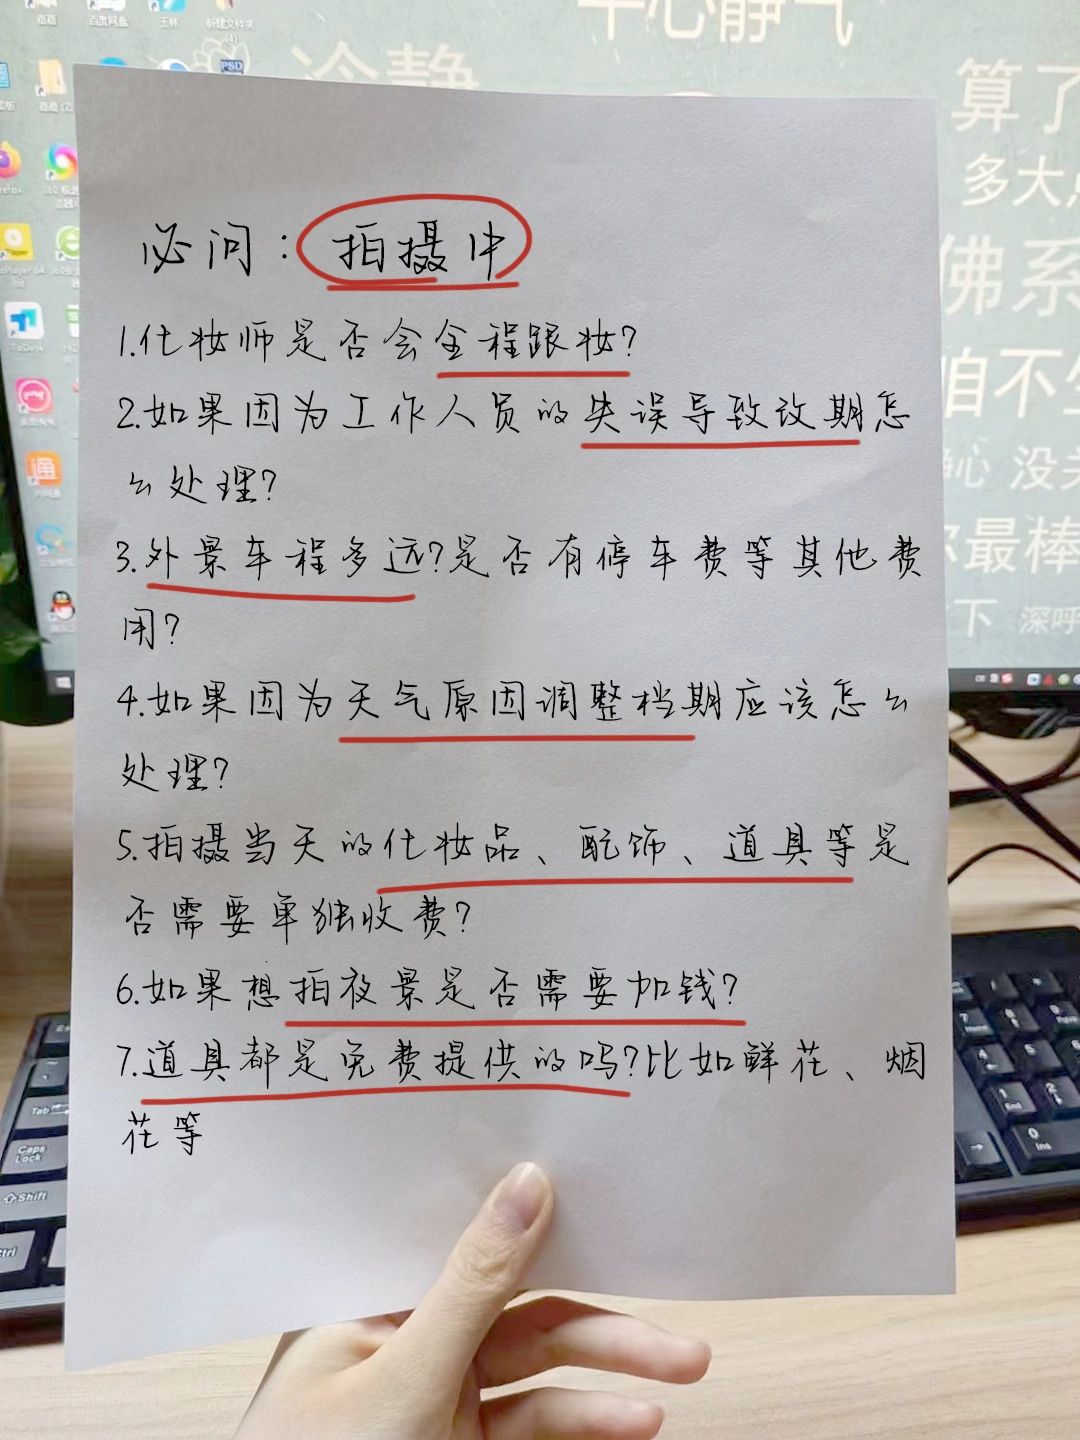 平心静气
冷静
算了
多大
佛系
咱不
没
最棒
下
深呼
百度网盘
王林
新建文件夹
(4)
PSD
ToDesk
必问：拍摄中
1.化妆师是否会全程跟妆？
2.如果因为工作人员的失误导致改期怎
么处理？
3.外景车程多远？是否有停车费等其他费
用？
4.如果因为天气原因调整档期应该怎么
处理？
5.拍摄当天的化妆品、配饰、道具等是
否需要单独收费？
6.如果想拍夜景是否需要加钱？
7.道具都是免费提供的吗？比如鲜花、烟
花等
Tab
Caps
Lock
Shift
Ctrl
7
Home
4
1
End
0
Ins